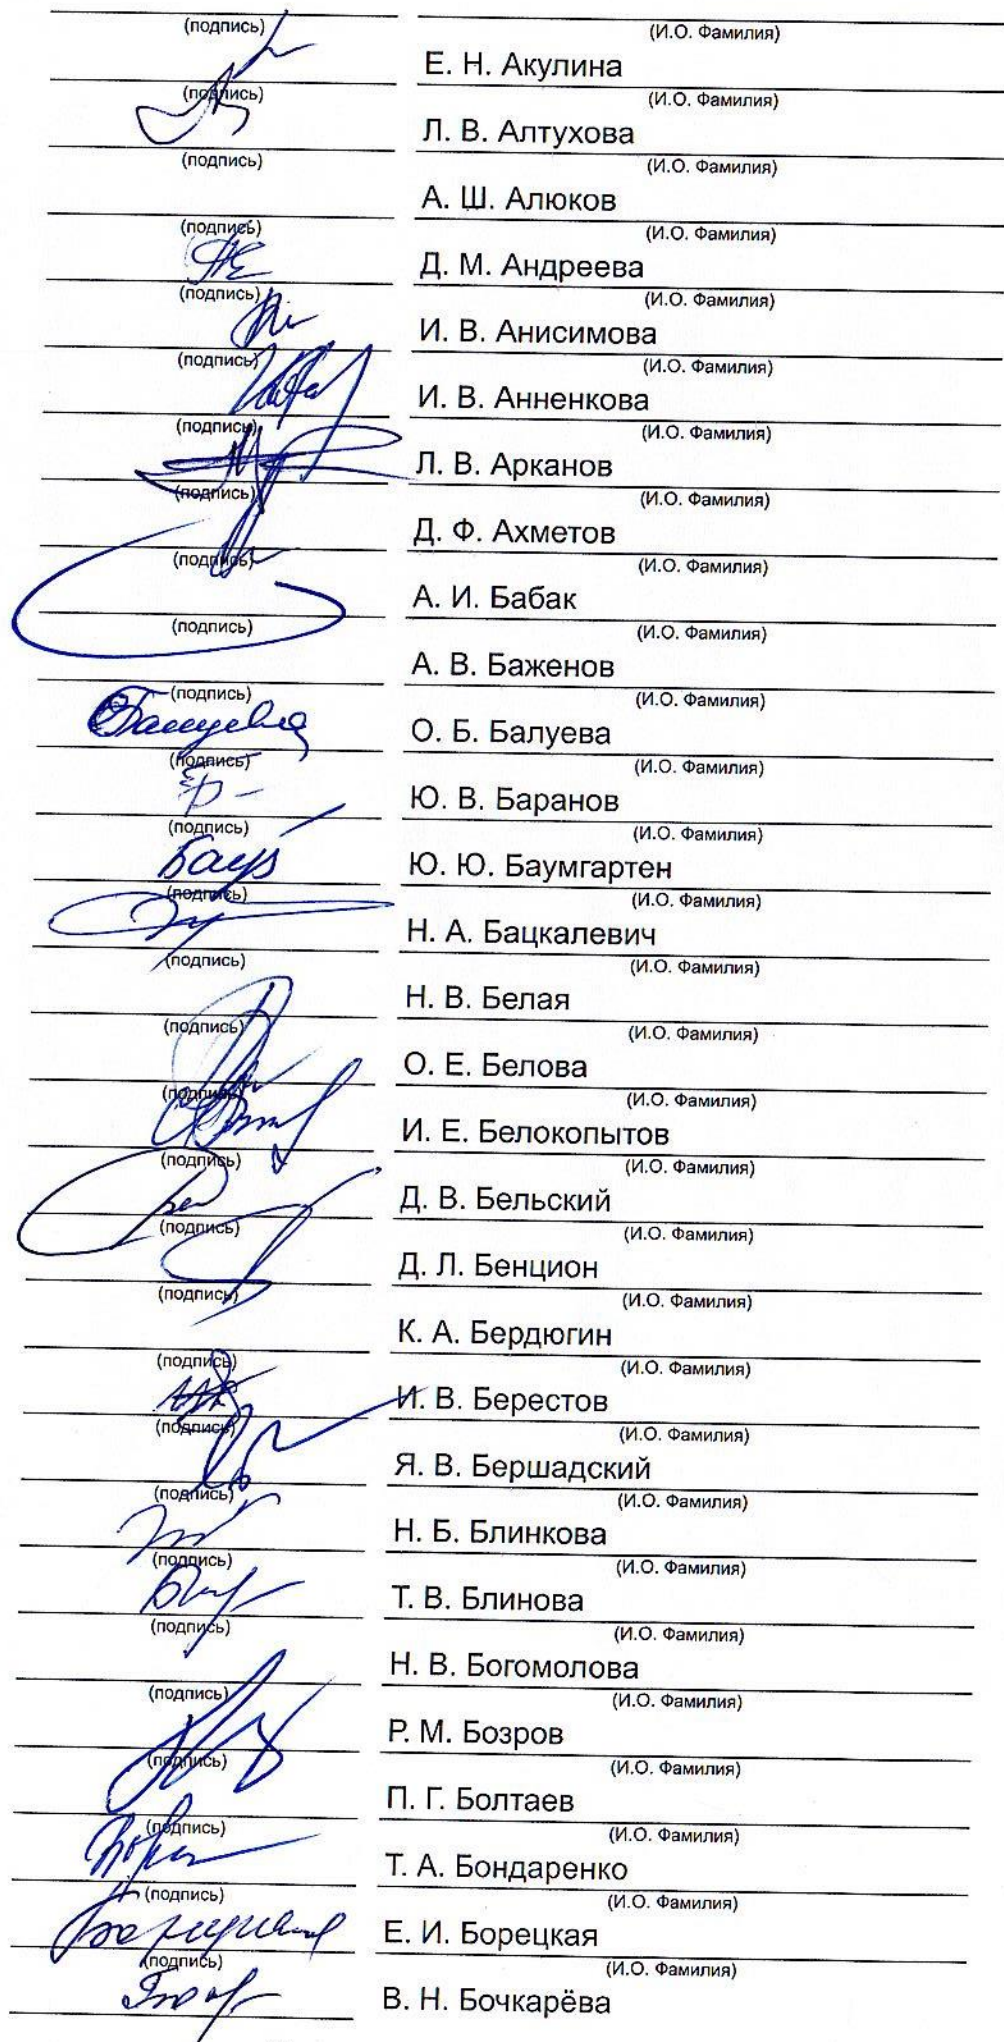 (подпись) (И.О. Фамилия)
Е. Н. Акулина
(подпись) (И.О. Фамилия)
Л. В. Алтухова
(подпись) (И.О. Фамилия)
А. Ш. Алюков
(подпись) (И.О. Фамилия)
Д. М. Андреева
(подпись) (И.О. Фамилия)
И. В. Анисимова
(подпись) (И.О. Фамилия)
И. В. Анненкова
(подпись) (И.О. Фамилия)
Л. В. Арканов
(подпись) (И.О. Фамилия)
Д. Ф. Ахметов
(подпись) (И.О. Фамилия)
А. И. Бабак
(подпись) (И.О. Фамилия)
А. В. Баженов
(подпись) (И.О. Фамилия)
О. Б. Балуева
(подпись) (И.О. Фамилия)
Ю. В. Баранов
(подпись) (И.О. Фамилия)
Ю. Ю. Баумгартен
(подпись) (И.О. Фамилия)
Н. А. Бацкалевич
(подпись) (И.О. Фамилия)
Н. В. Белая
(подпись) (И.О. Фамилия)
О. Е. Белова
(подпись) (И.О. Фамилия)
И. Е. Белокопытов
(подпись) (И.О. Фамилия)
Д. В. Бельский
(подпись) (И.О. Фамилия)
Д. Л. Бенцион
(подпись) (И.О. Фамилия)
К. А. Бердюгин
(подпись) (И.О. Фамилия)
И. В. Берестов
(подпись) (И.О. Фамилия)
Я. В. Бершадский
(подпись) (И.О. Фамилия)
Н. Б. Блинкова
(подпись) (И.О. Фамилия)
Т. В. Блинова
(подпись) (И.О. Фамилия)
Н. В. Богомолова
(подпись) (И.О. Фамилия)
Р. М. Бозров
(подпись) (И.О. Фамилия)
П. Г. Болтаев
(подпись) (И.О. Фамилия)
Т. А. Бондаренко
(подпись) (И.О. Фамилия)
Е. И. Борецкая
(подпись) (И.О. Фамилия)
В. Н. Бочкарёва